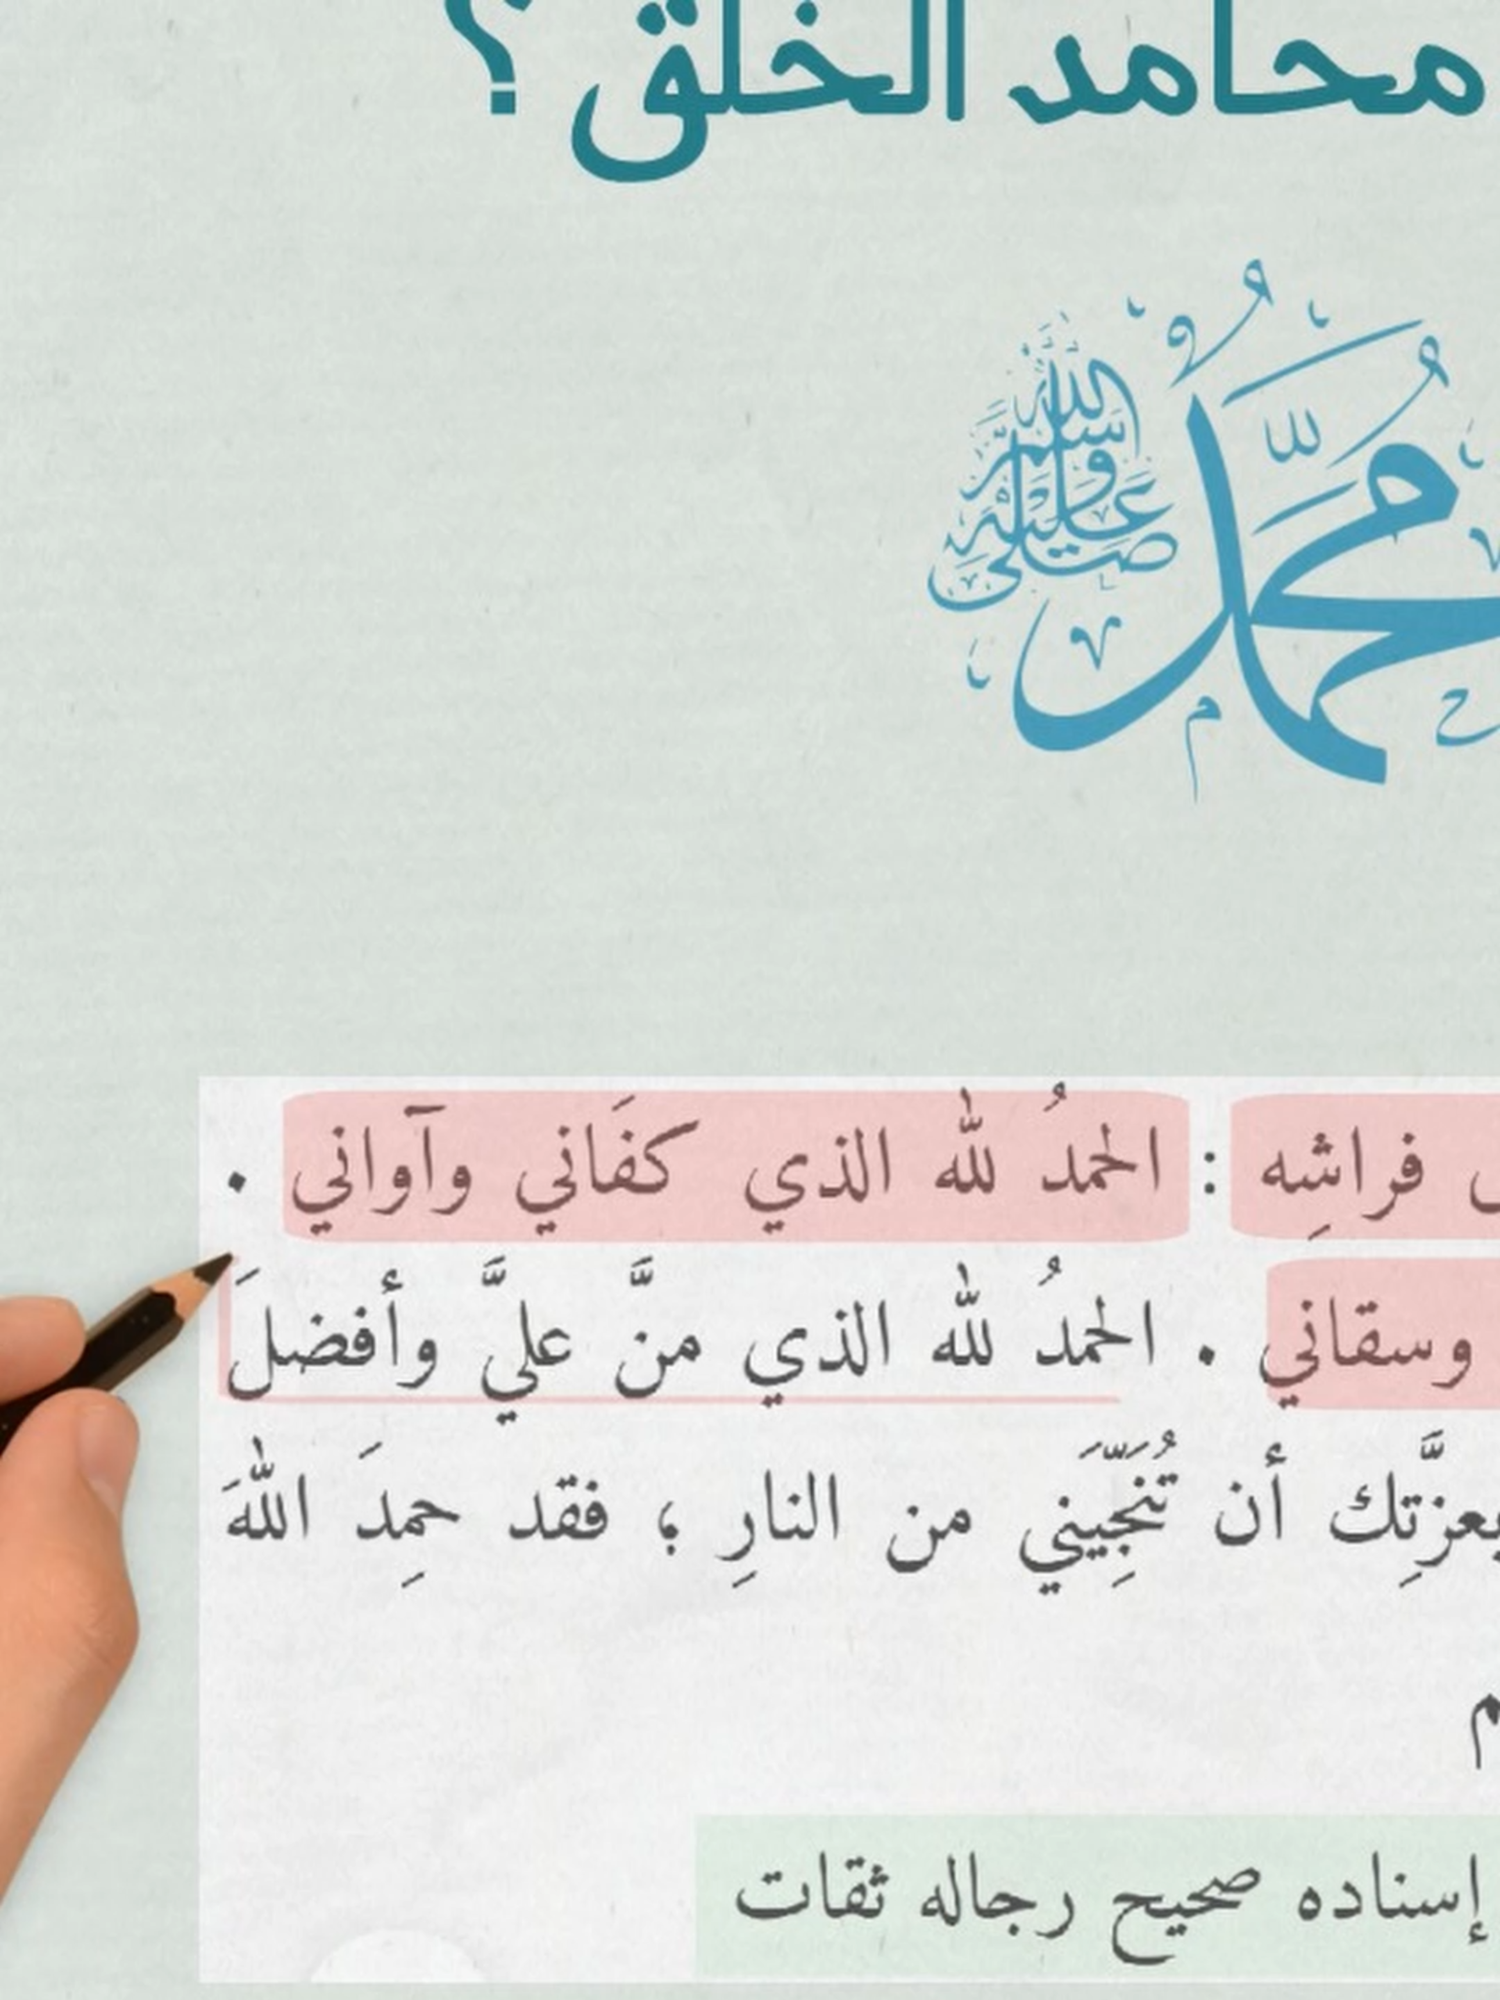 محامد الخلق؟
محمد
صلى الله عليه وسلم
فراشِه : الحمدُ لله الذي كفَاني وآواني .
وسقاني . الحمدُ لله الذي منَّ عليَّ وأفضلَ
بعزَّتِك أن تُنَجِّيَني من النارِ ؛ فقد حمِدَ اللهَ
م
إسناده صحيح رجاله ثقات